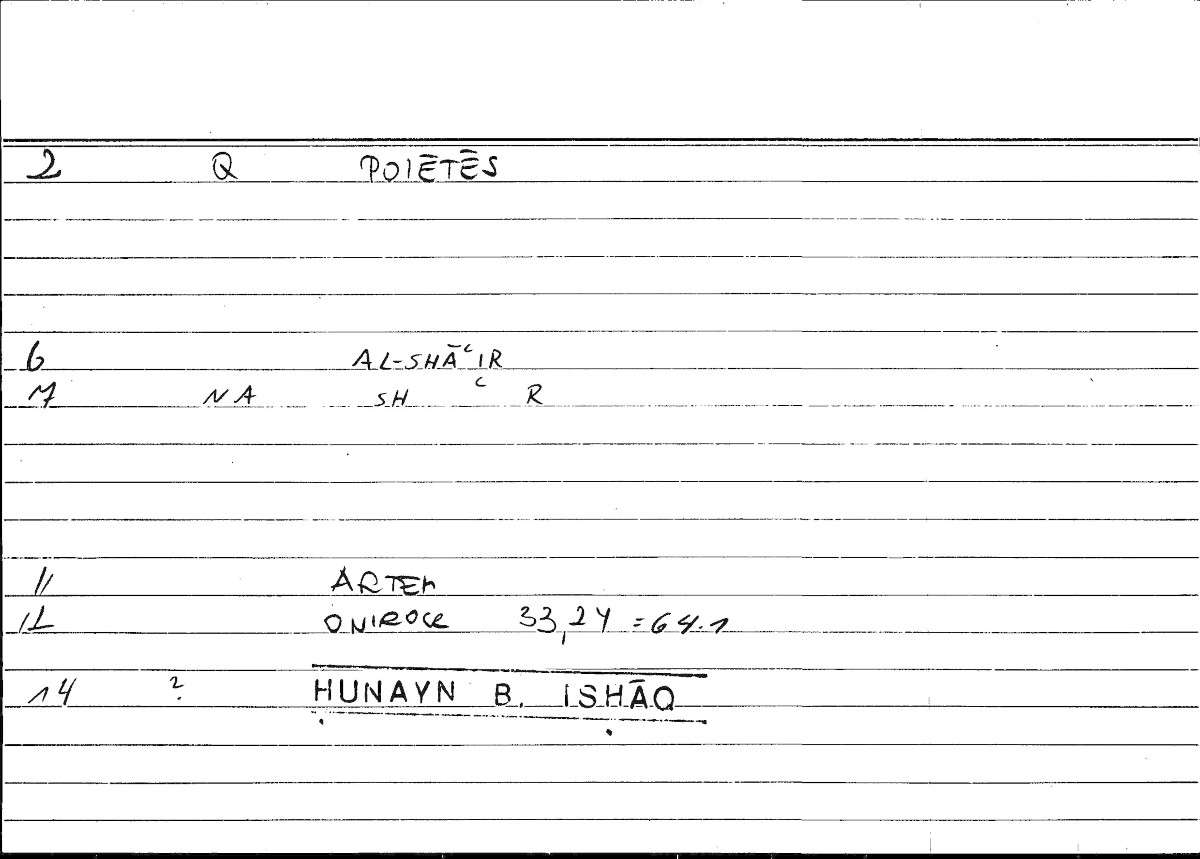 2 Q POIĒTĒS
6 AL-SHĀʿIR
7 NA SH ʿ R
11 ARTEM
12 ONIROCR 33,24 = 64.1
14 ? ḤUNAYN B. ISḤĀQ